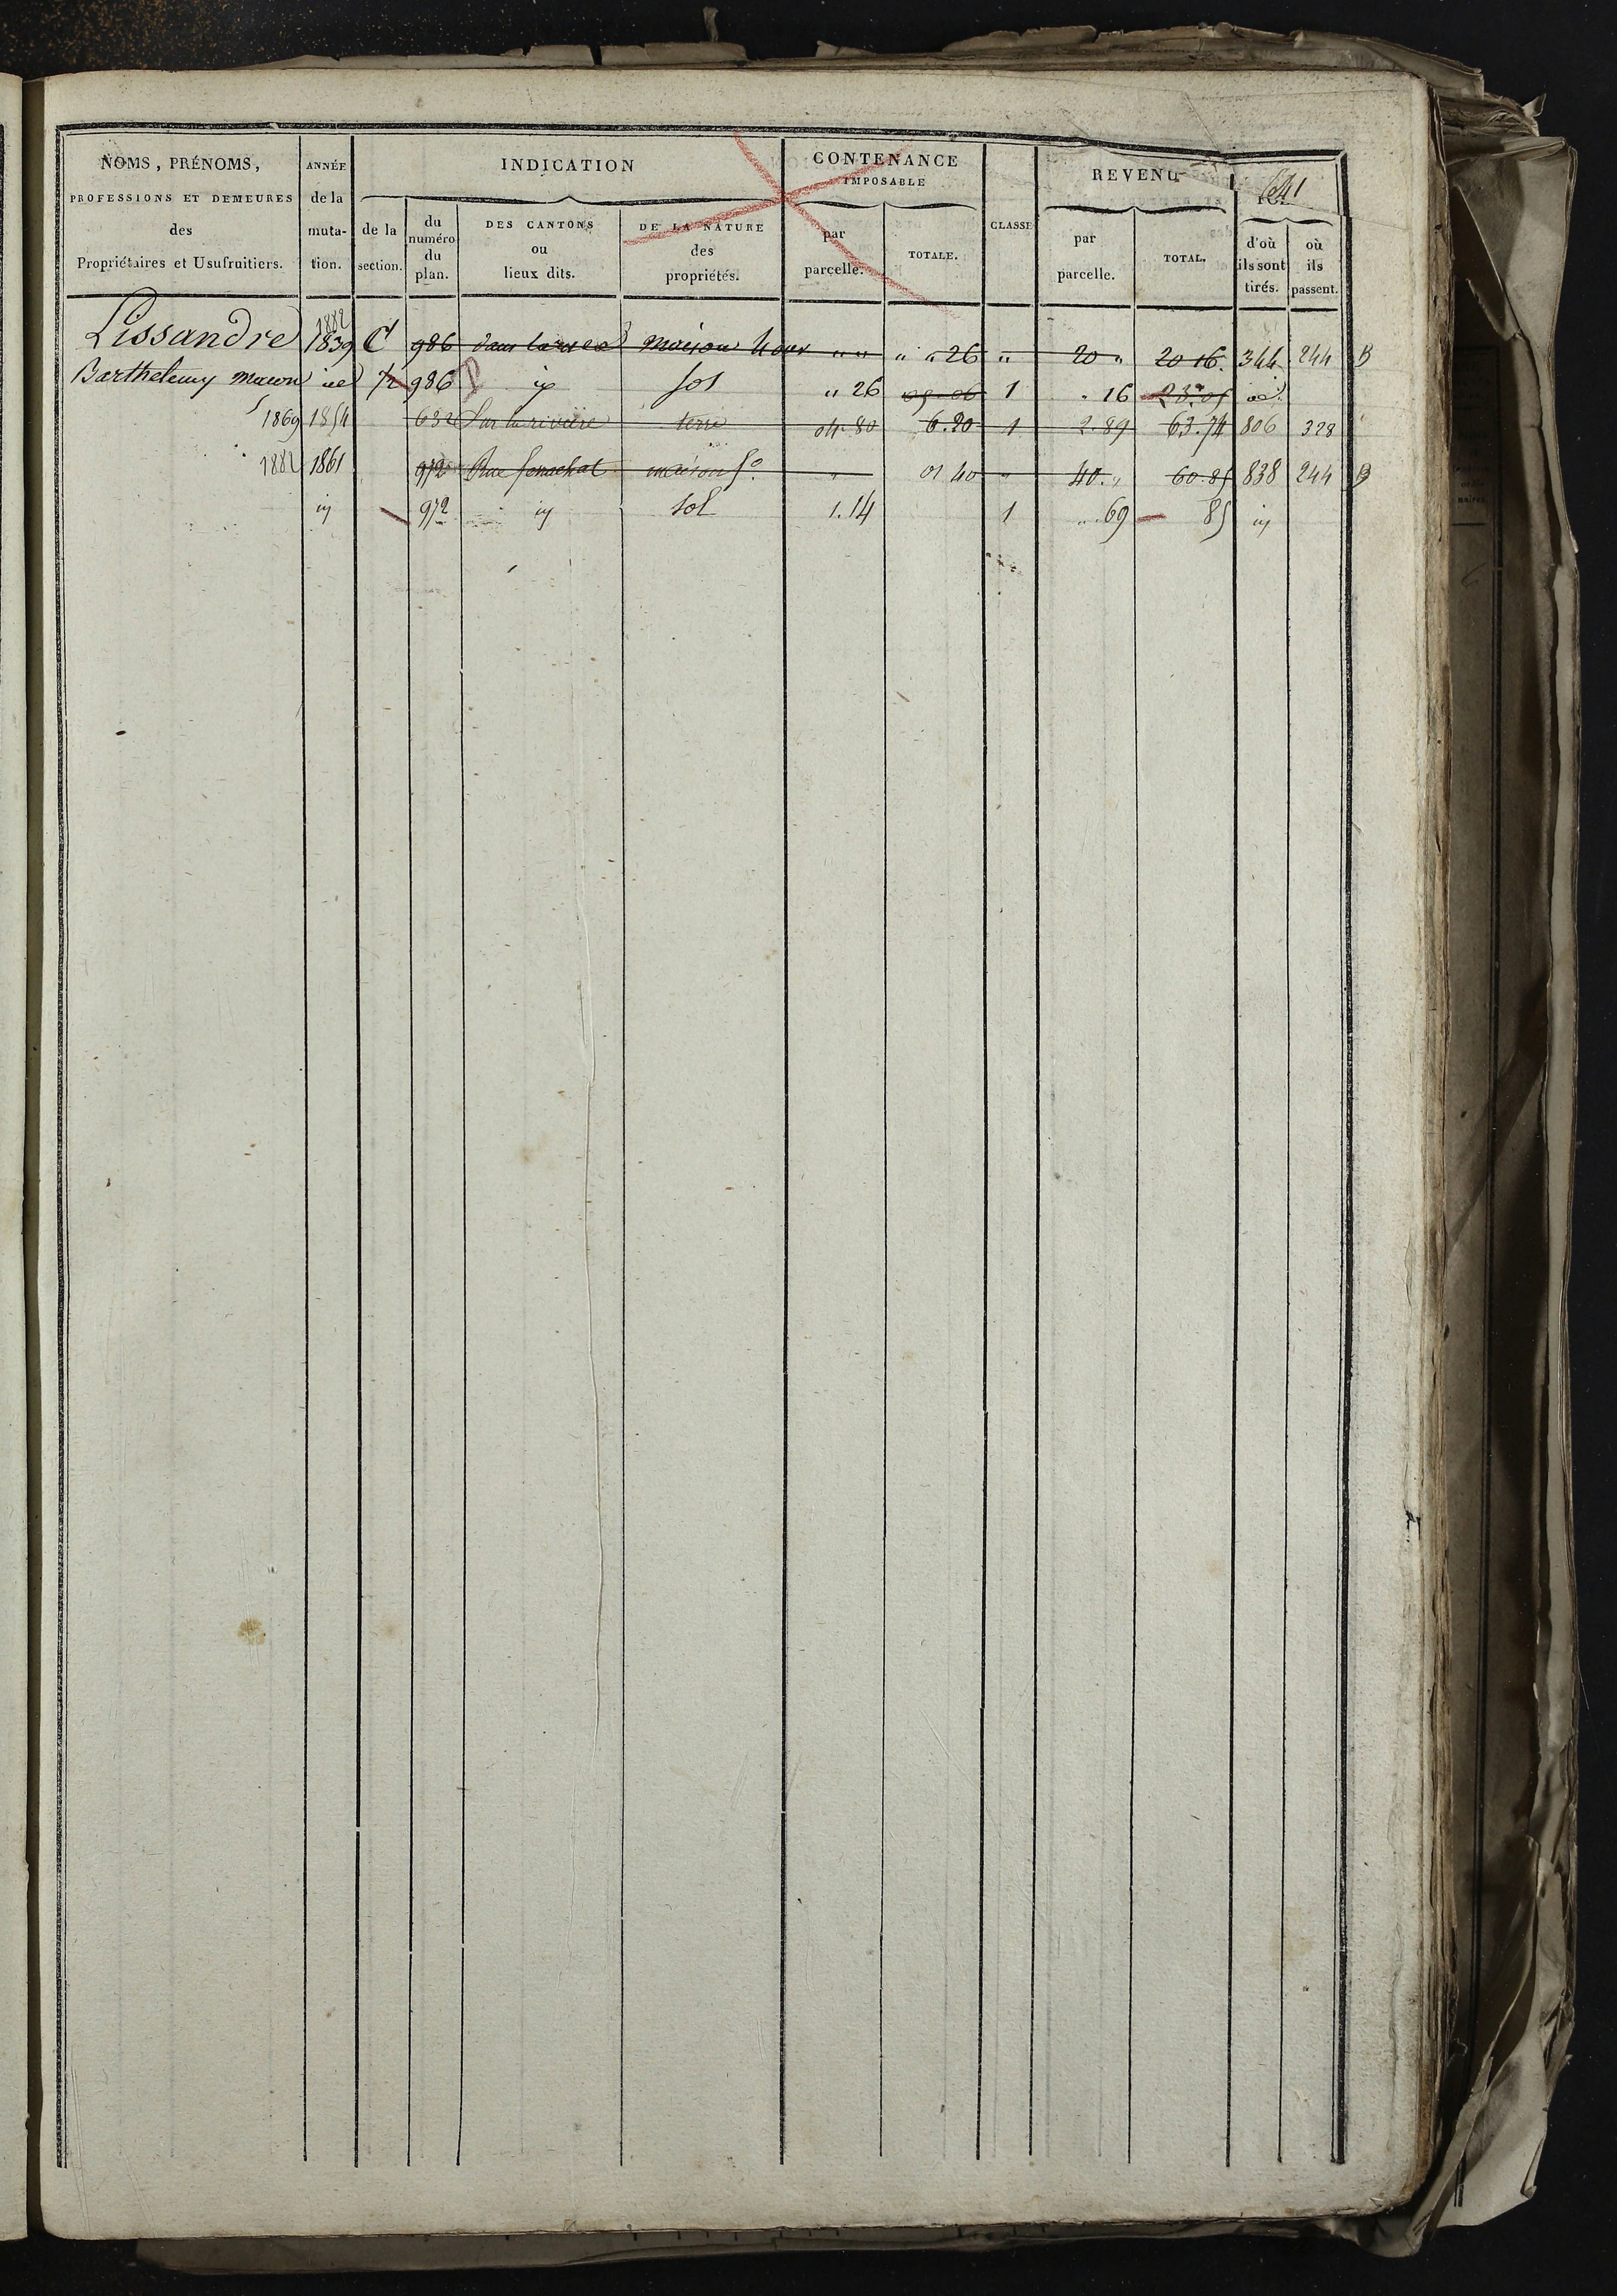 NOMS, PRÉNOMS,
PROFESSIONS ET DEMEURES
des
Propriétaires et Usufruitiers.
ANNÉE
de la
muta-
tion.
INDICATION
de la
section.
du
numéro
du
plan.
DES CANTONS
ou
lieux dits.
DE LA NATURE
des
propriétés.
CONTENANCE
IMPOSABLE
par
parcelle.
TOTALE.
CLASSE
REVENU
par
parcelle.
TOTAL.
641
d'où
ils sont
tirés.
où
ils
passent.
1882
Lissandre 1839 C 986 dans la rue maison " " " " 26 " 20 " 20 16. 344 244 B
Barthelemy macon id 986 id sol " 26 1 " 16 23.05 id
1869 1854 632 Sur la rivière terre 04 80 6.20 1 2.89 63.74 806 328
1882 1861 972 Rue maison " 01 40 " 40. " 60.85 838 244 B
id 972 id sol 1.14 1 " 69 85 id